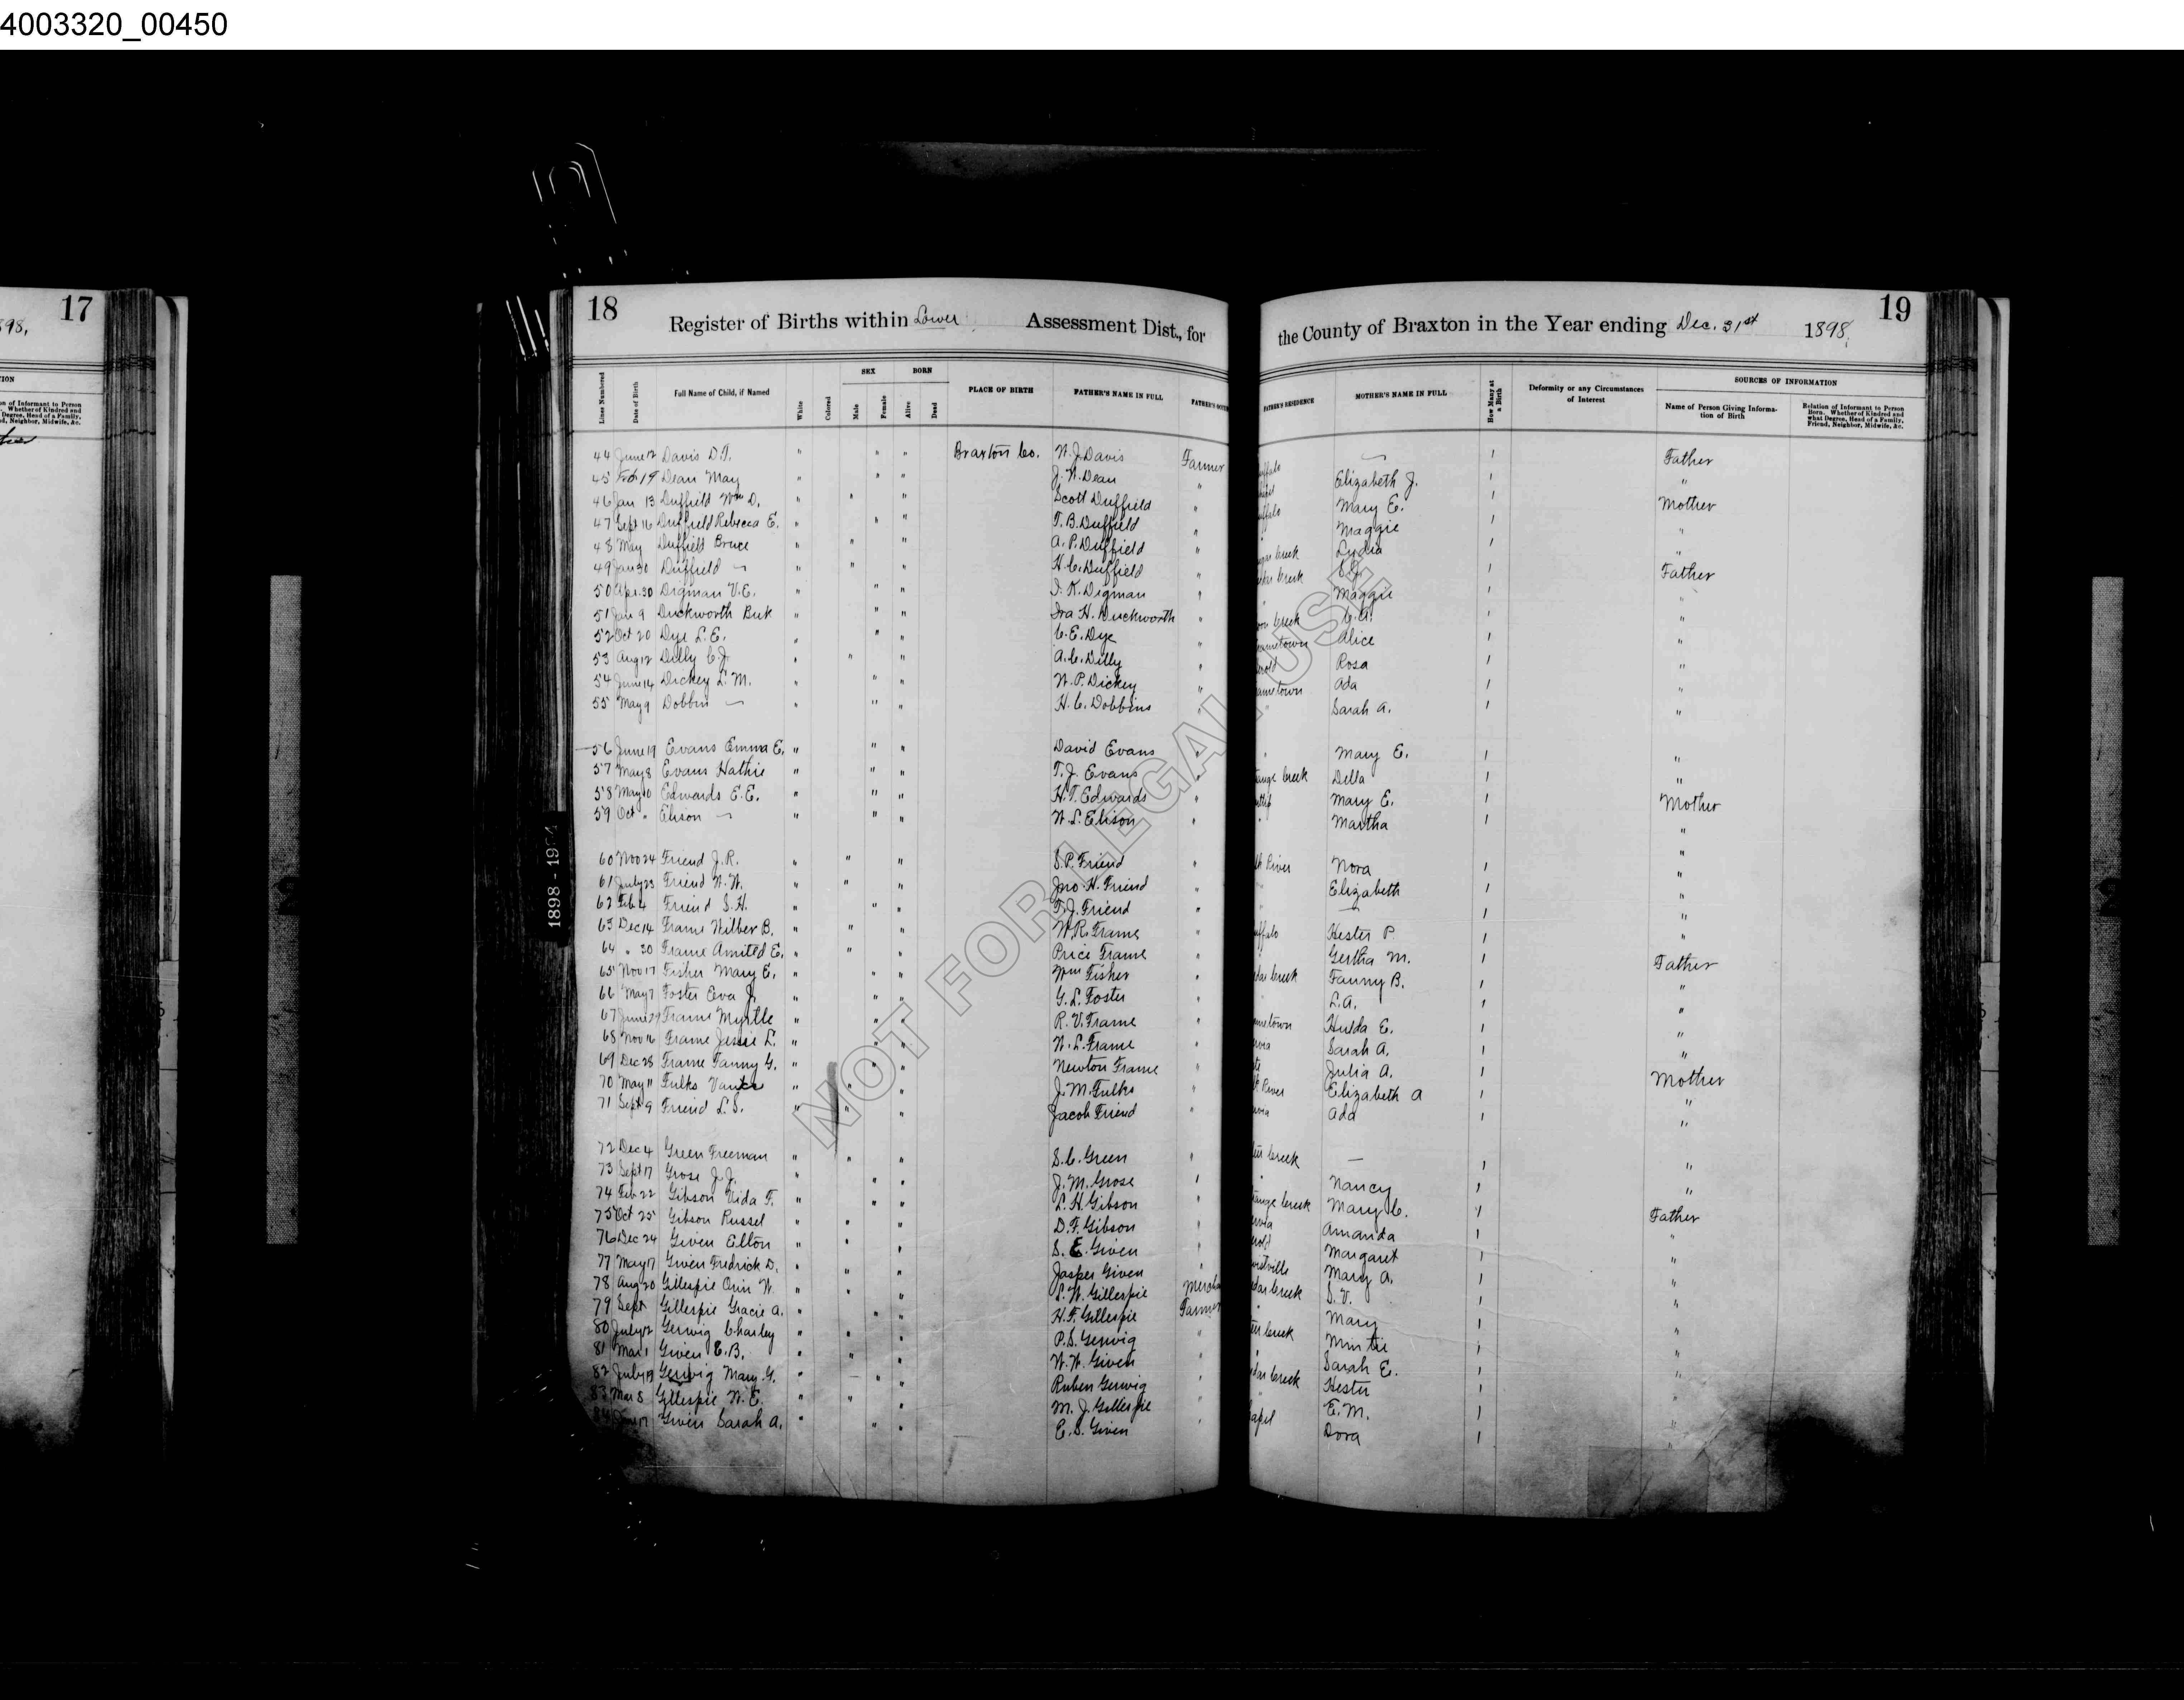 4003320_00450
17
898,
18
Register of Births within Lower Assessment Dist., for
the County of Braxton in the Year ending Dec. 31st 1898.
19
Lines Numbered
Date of Birth
Full Name of Child, if Named
White
Colored
SEX
Male
Female
BORN
Alive
Dead
PLACE OF BIRTH
FATHER'S NAME IN FULL
FATHER'S RESIDENCE
MOTHER'S NAME IN FULL
How Many at a Birth
Deformity or any Circumstances of Interest
SOURCES OF INFORMATION
Name of Person Giving Information of Birth
Relation of Informant to Person Born. Whether of Kindred and what Degree, Head of a Family, Friend, Neighbor, Midwife, &c.
44 June 12 Davis D.T. " " " Braxton Co. W. J. Davis Farmer 1 Father
45 Feb 19 Dean May " " " J. W. Dean " Elizabeth J. 1 "
46 Jan 13 Duffield Wm D. " " " Scott Duffield " Mary E. 1 Mother
47 Sept 16 Duffield Rebecca E. " " " T. B. Duffield " Maggie 1 "
48 May Duffield Bruce " " " A. P. Duffield " creek Lydia 1 "
49 Jan 30 Duffield — " " " H. C. Duffield " creek S. J. 1 Father
50 Apr. 30 Digman V. E. " " " I. K. Digman " Maggie 1 "
51 June 9 Duckworth " " " Ira H. Duckworth " creek C. A. 1 "
52 Oct 20 Dye L. E. " " " C. E. Dye " Alice 1 "
53 Aug 12 Dilly C. J. " " " A. C. Dilly " Rosa 1 "
54 June 14 Dickey L. M. " " " W. P. Dickey " Ada 1 "
55 May 9 Dobbins — " " " H. C. Dobbins " Sarah A. 1 "
56 June 19 Evans Emma E. " " " David Evans " Mary E. 1 "
57 May 8 Evans Hathie " " " T. J. Evans " creek Della 1 "
58 May 10 Edwards E. E. " " " H. T. Edwards " Mary E. 1 Mother
59 Oct " Elison — " " " W. L. Elison " Martha 1 "
60 Nov 24 Friend J. R. " " " S. P. Friend " River Nora 1 "
61 July 23 Friend W. W. " " " Jno. H. Friend " Elizabeth 1 "
62 Feb 4 Friend S. H. " " " T. J. Friend " — 1 "
63 Dec 14 Frame Wilber B. " " " W. R. Frame " Hester P. 1 "
64 " 30 Frame Amited E. " " " Price Frame " Gertha M. 1 "
65 Nov 17 Fisher Mary E. " " " Wm Fisher " creek Fanny B. 1 Father
66 May 7 Foster Eva J. " " " G. L. Foster " L. A. 1 "
67 June 29 Frame Myrtle " " " R. V. Frame " Hulda E. 1 "
68 Nov 16 Frame Jessie L. " " " W. L. Frame " Sarah A. 1 "
69 Dec 28 Frame Fanny G. " " " Newton Frame " Julia A. 1 "
70 May 11 Fulks Vance " " " J. M. Fulks " River Elizabeth A 1 Mother
71 Sept 9 Friend L. S. " " " Jacob Friend " Ada 1 "
72 Dec 4 Green Freeman " " " S. C. Green " creek — 1 "
73 Sept 17 Grose J. J. " " " J. M. Grose " Nancy 1 "
74 Feb 22 Gibson Vida F. " " " L. H. Gibson " creek Mary C. 1 "
75 Oct 25 Gibson Russel " " " D. F. Gibson " Amanda 1 Father
76 Dec 24 Given Elton " " " S. E. Given " Margaret 1 "
77 May 17 Given Fredrick D. " " " Jasper Given " Mary A. 1 "
78 Aug 20 Gillespie Orin W. " " " S. W. Gillespie creek S. V. 1 "
79 Sept Gillespie Gracie A. " " " H. F. Gillespie Farmer Mary 1 "
80 July 12 Gerwig Charley " " " P. S. Gerwig " creek Mintie 1 "
81 Mar 1 Given E. B. " " " W. W. Given " Sarah E. 1 "
82 July 19 Gerwig Mary G. " " " Ruben Gerwig " creek Hester 1 "
83 Mar 8 Gillespie W. E. " " " M. J. Gillespie " E. M. 1 "
84 17 Given Sarah A. " " " E. S. Given " Dora 1 "
1898 - 19
NOT FOR LEGAL USE